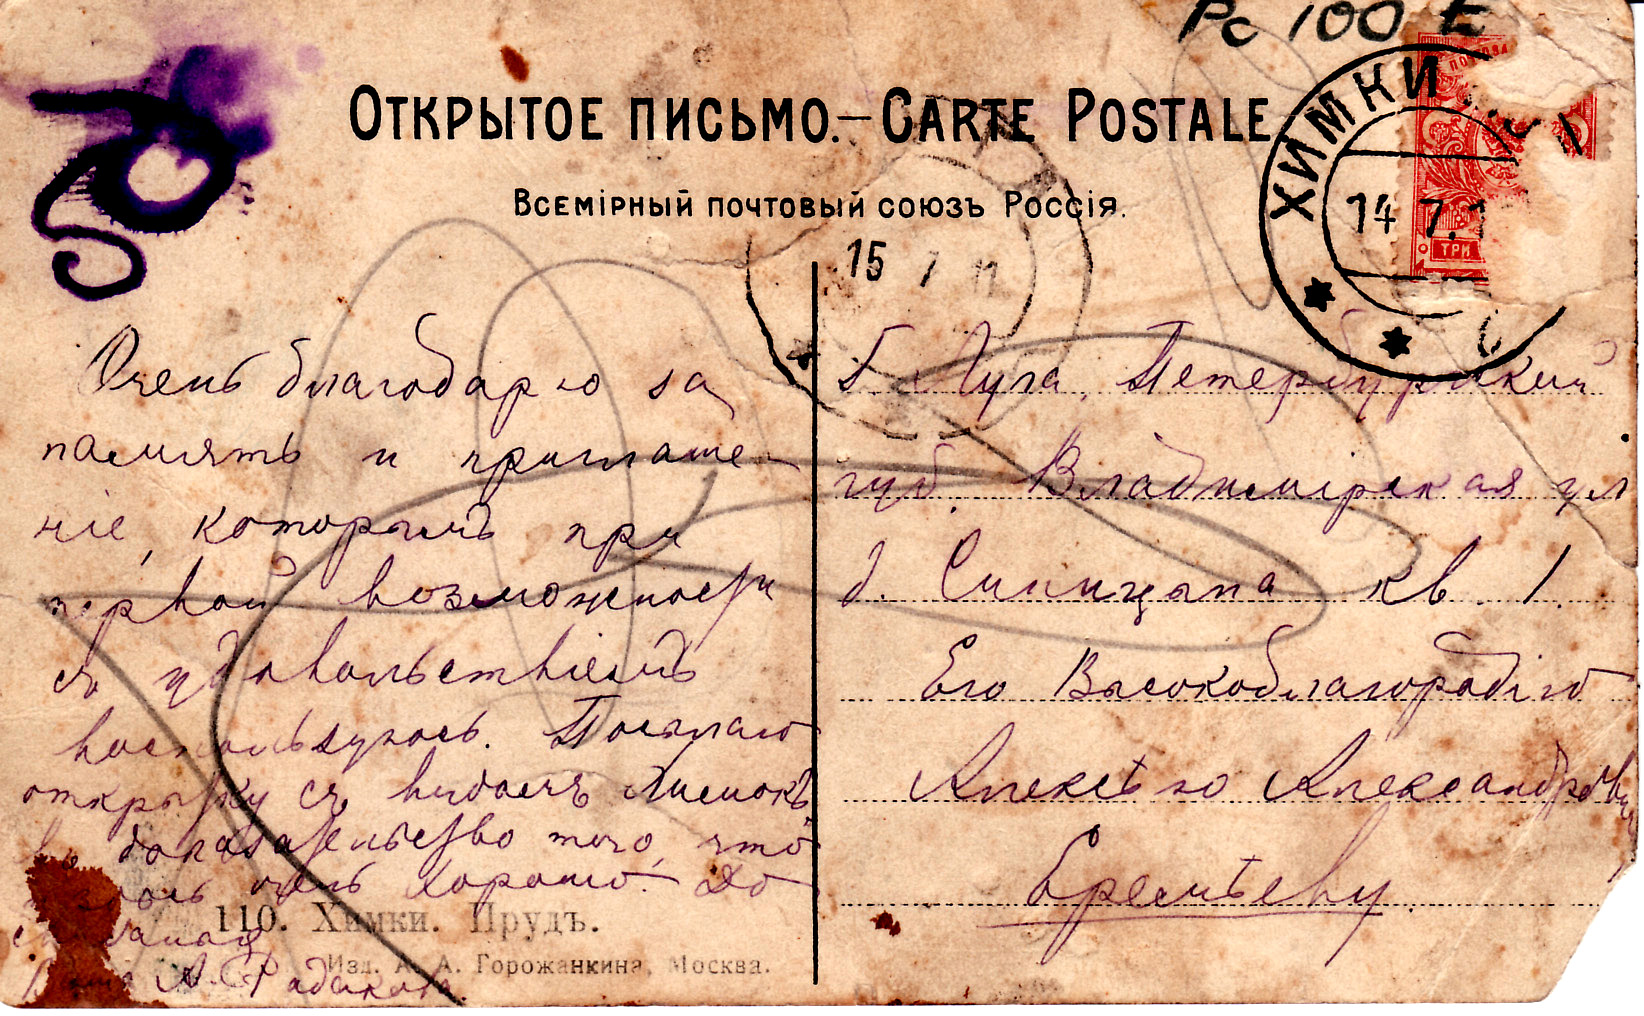 Рс 100 Е
50
ОТКРЫТОЕ ПИСЬМО.—CARTE POSTALE
ВСЕМІРНЫЙ ПОЧТОВЫЙ СОЮЗЪ РОССІЯ.
ХИМКИ
14 7.1
ТРИ
15 7 11
Очень благодарю за
память и приглаше-
ніе, которымъ при
первой возможности
съ удовольствіемъ
воспользуюсь. Посылаю
открытку съ видомъ Химокъ
въ доказательство того, что
здѣсь очень хорошо. До
свиданія
Ваша А.
г. Луга, Петербургской
губ. Владимірская ул
д. Синицына кв. 1.
Его Высокоблагородію
Алексѣю Александрович
Еремѣеву.
110. Химки. Прудъ.
Изд. А. А. Горожанкина, Москва.